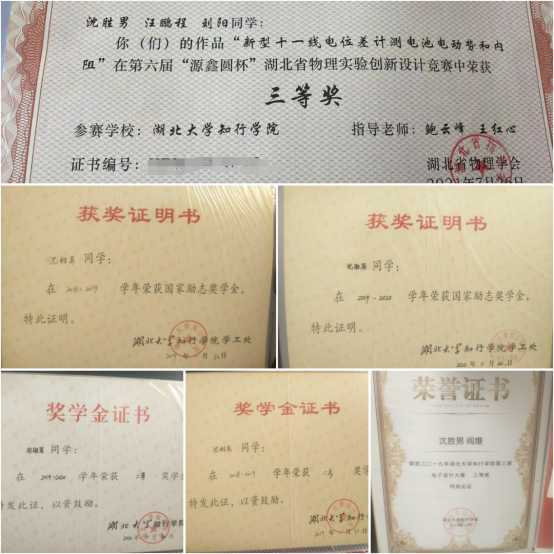 沈胜男 汪鹏程 刘阳同学：
你（们）的作品“新型十一线电位差计测电池电动势和内
阻”在第六届“源鑫圆杯”湖北省物理实验创新设计竞赛中荣获
三等奖
参赛学校：湖北大学知行学院 指导老师：鲍云峰 王红心
证书编号：
湖北省物理学会
2021年7月26日
获奖证明书
沈胜男 同学：
在 2018-2019 学年荣获国家励志奖学金，
特此证明。
湖北大学知行学院学工处
获奖证明书
沈胜男 同学：
在 2019-2020 学年荣获国家励志奖学金，
特此证明。
湖北大学知行学院学工处
奖学金证书
同学：
在 2019-2020 学年荣获 奖学金
特发此证，以资鼓励。
湖北大学知行学院
奖学金证书
沈胜男 同学：
在 2018-2019 学年荣获 奖学
特发此证，以资鼓励。
湖北大学知行学院
荣誉证书
沈胜男 阎熳
荣获二〇一九年湖北大学知行学院第三届
电子设计大赛 三等奖
特发此证
湖北大学知行学院